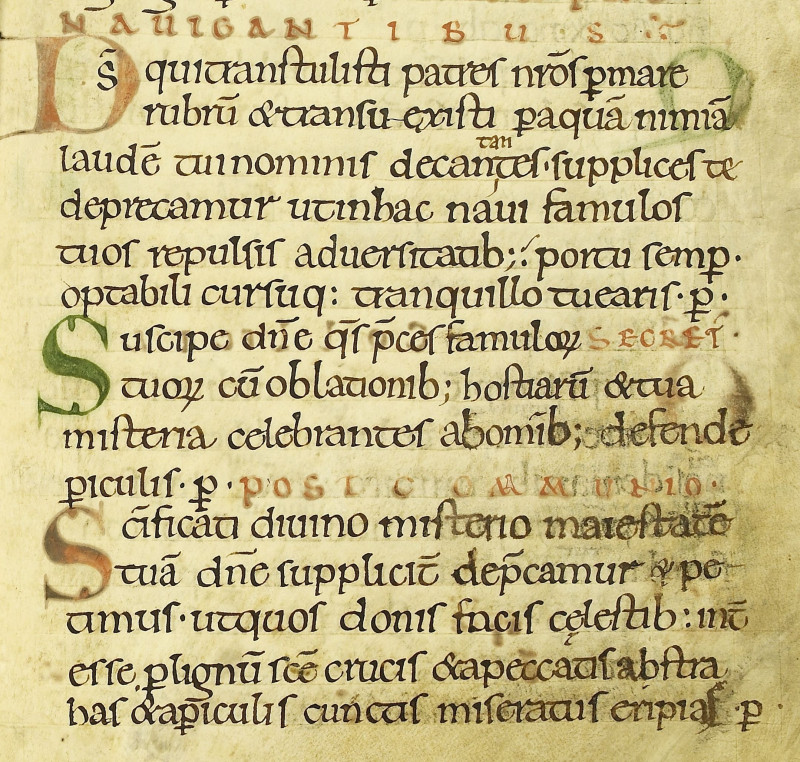 NAUIGANTIBUS
D̄S qui transtulisti patres nr̄os ꝑ mare
rubrū & transuexisti ꝑ aquā nimiā
laudē tui nominis decantantes · supplices te
deprecamur ut in hac naui famulos
tuos repulsis aduersitatib; portu semꝑ ·
optabili cursuq: tranquillo tuearis · ꝑ ·
Suscipe dn̄e q̄s p̄ces famuloꝝ SECRET ·
tuoꝝ cū oblationib; hostiarū & tua
misteria celebrantes ab om̄ib; defende
ꝑiculis · ꝑ · POST COMMUNIO ·
Sc̄ificati diuino misterio maiestatē
tuā dn̄e supplicit̄ dep̄camur & pe
timus · ut quos donis facis cęlestib: int̄
esse ꝑ lignū sc̄e crucis & a peccatis abstra
has & a ꝑiculis cunctis miseratus eripias · ꝑ